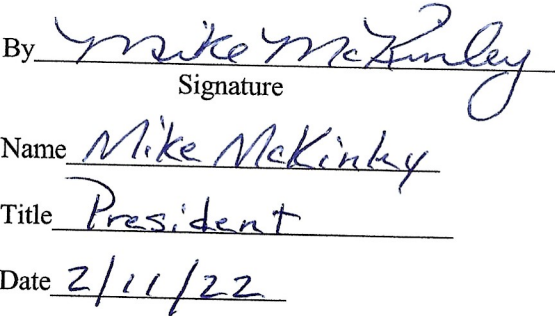 By Mike McKinley
Signature
Name Mike McKinley
Title President
Date 2/11/22